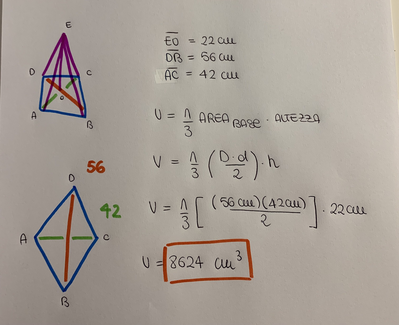 E
D C
O
A B
EO = 22 cm
DB = 56 cm
AC = 42 cm
V = 1/3 AREA BASE · ALTEZZA
V = 1/3 (D·d/2) · h
V = 1/3 [(56 cm)(42 cm)/2] · 22 cm
V = 8624 cm³
56
D
42
A C
B